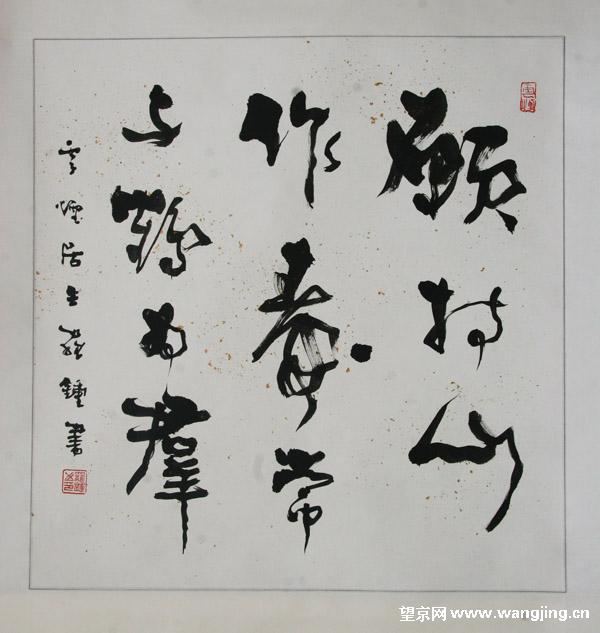 願持山
作壽常
与鶴為羣
雲煙居主羅鍾書
望京网 www.wangjing.cn